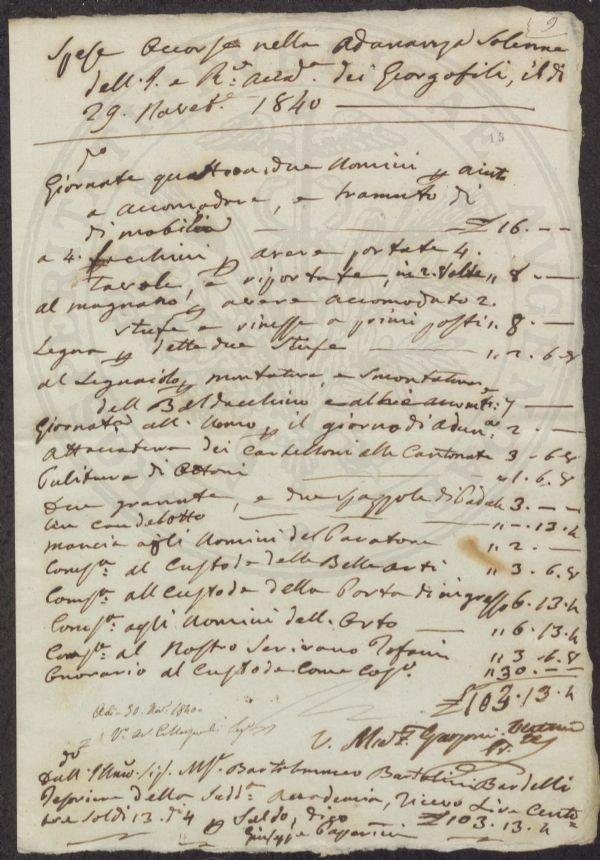 9
Spese Occorse nella Adunanza Solenne
dell'I. e R.e Accad.a dei Georgofili, il dì
29. Noveb.e 1840
15
Giornate quattro a due Uomini p aiuto
a accomodare, e tramuto di
di mobilia £ 16. — —
a 4. facchini p avere portate 4.
Tavole, e riportate, in 2. Volte „ 8 . —
al magnano, p avere accomodato 2.
stufe e rimesse a primi posti „ 8. —
Legna p dette due stufe „ 2. 6. 8
al Legnaiolo, p montatura, e smontatura
dell Baldacchino e altri 7 —
Giornata all. Uomo p il giorno di Adun.a 2 . —
Attaccatura dei Cartelloni alle Cantonate 3 . 6. 8
Pulitura di Ottoni „ 1 . 6. 8
Due granate, e due spazzole di Padule 3. — —
Un candelotto „ — . 13. 4
Mancia agli Uomini del Pavatore „ 2 . —
Comp.a al Custode delle Belle arti „ 3 . 6. 8
Comp.a all Custode della Porta di ingresso 6. 13. 4
Comp.a agli Uomini dell. Orto „ 6. 13. 4
Comp.a al Nostro Scrivano Tofani „ 3 . 6. 8
Onorario al Custode Come Cap.o „ 30. — —
£ 103. 13. 4
Adì 30. Nov.e 1840
V.
V.
Dall. Illmo. Sig. M.se Bartolommeo Bartolini Bardelli
Tesoriere della Sudd.a Accademia, Ricevo Lire Cento
tre Soldi 13. d. 4 p Saldo, dico £ 103. 13. 4
Giuseppe